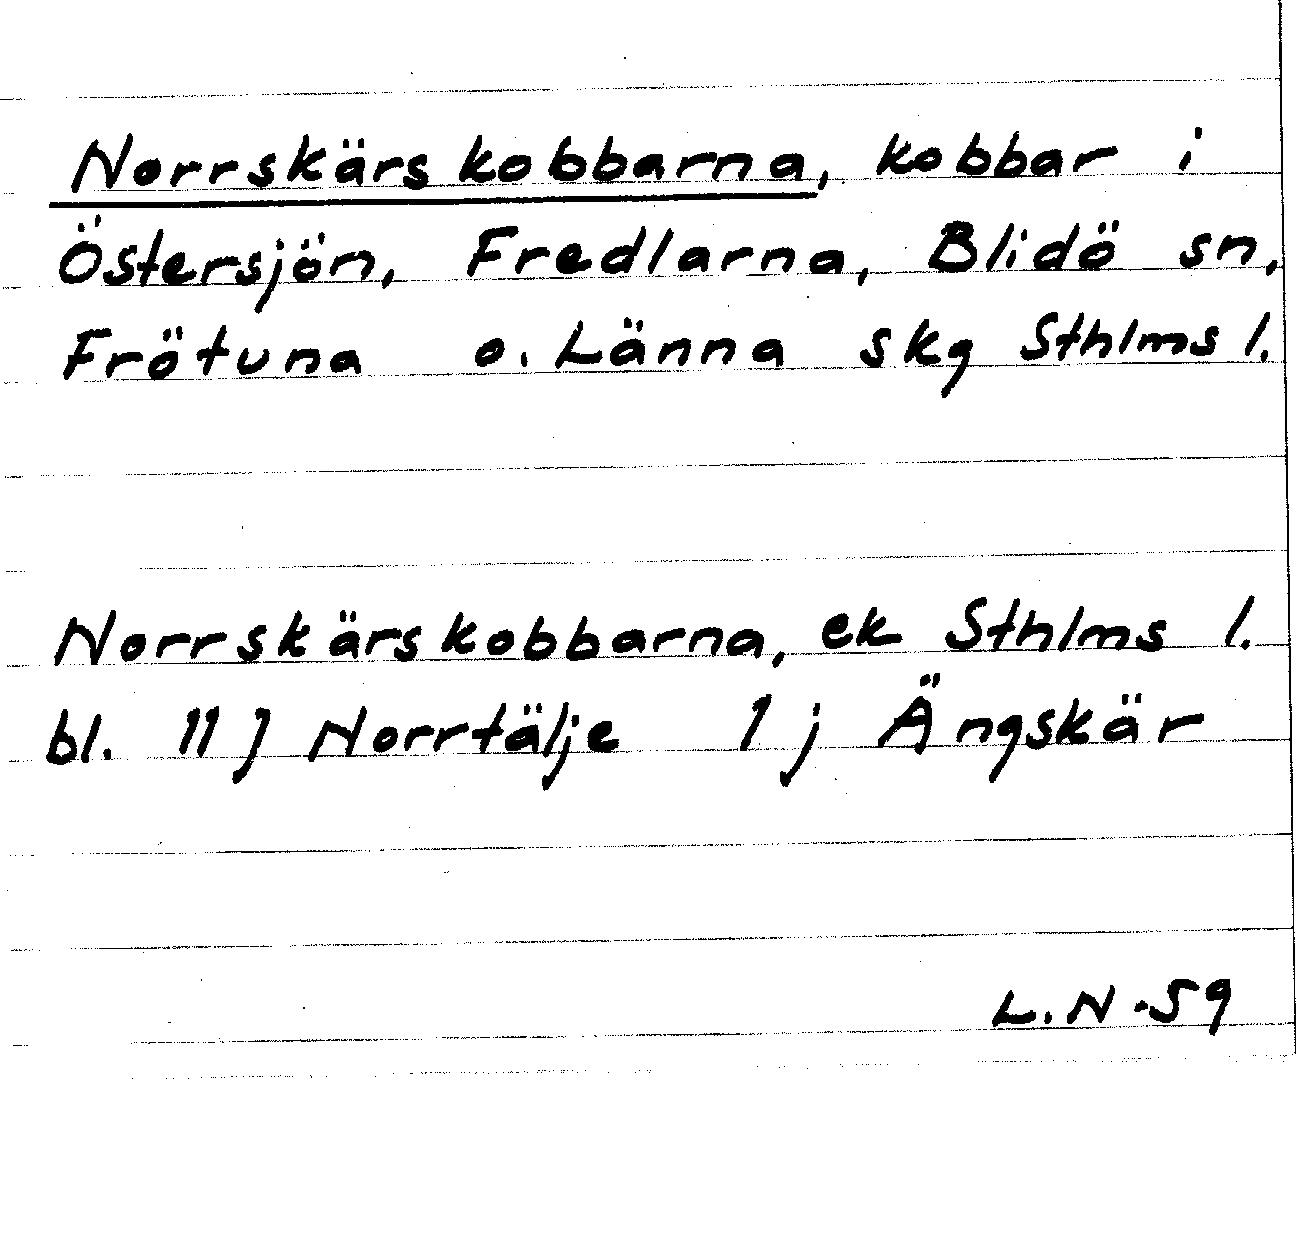 Norrskärskobbarna, kobbar i
Östersjön, Fredlarna, Blidö sn,
Frötuna o. Länna skg Sthlms l.
Norrskärskobbarna, ek Sthlms l.
bl. 11 J Norrtälje 1 j Ängskär
L.N -59